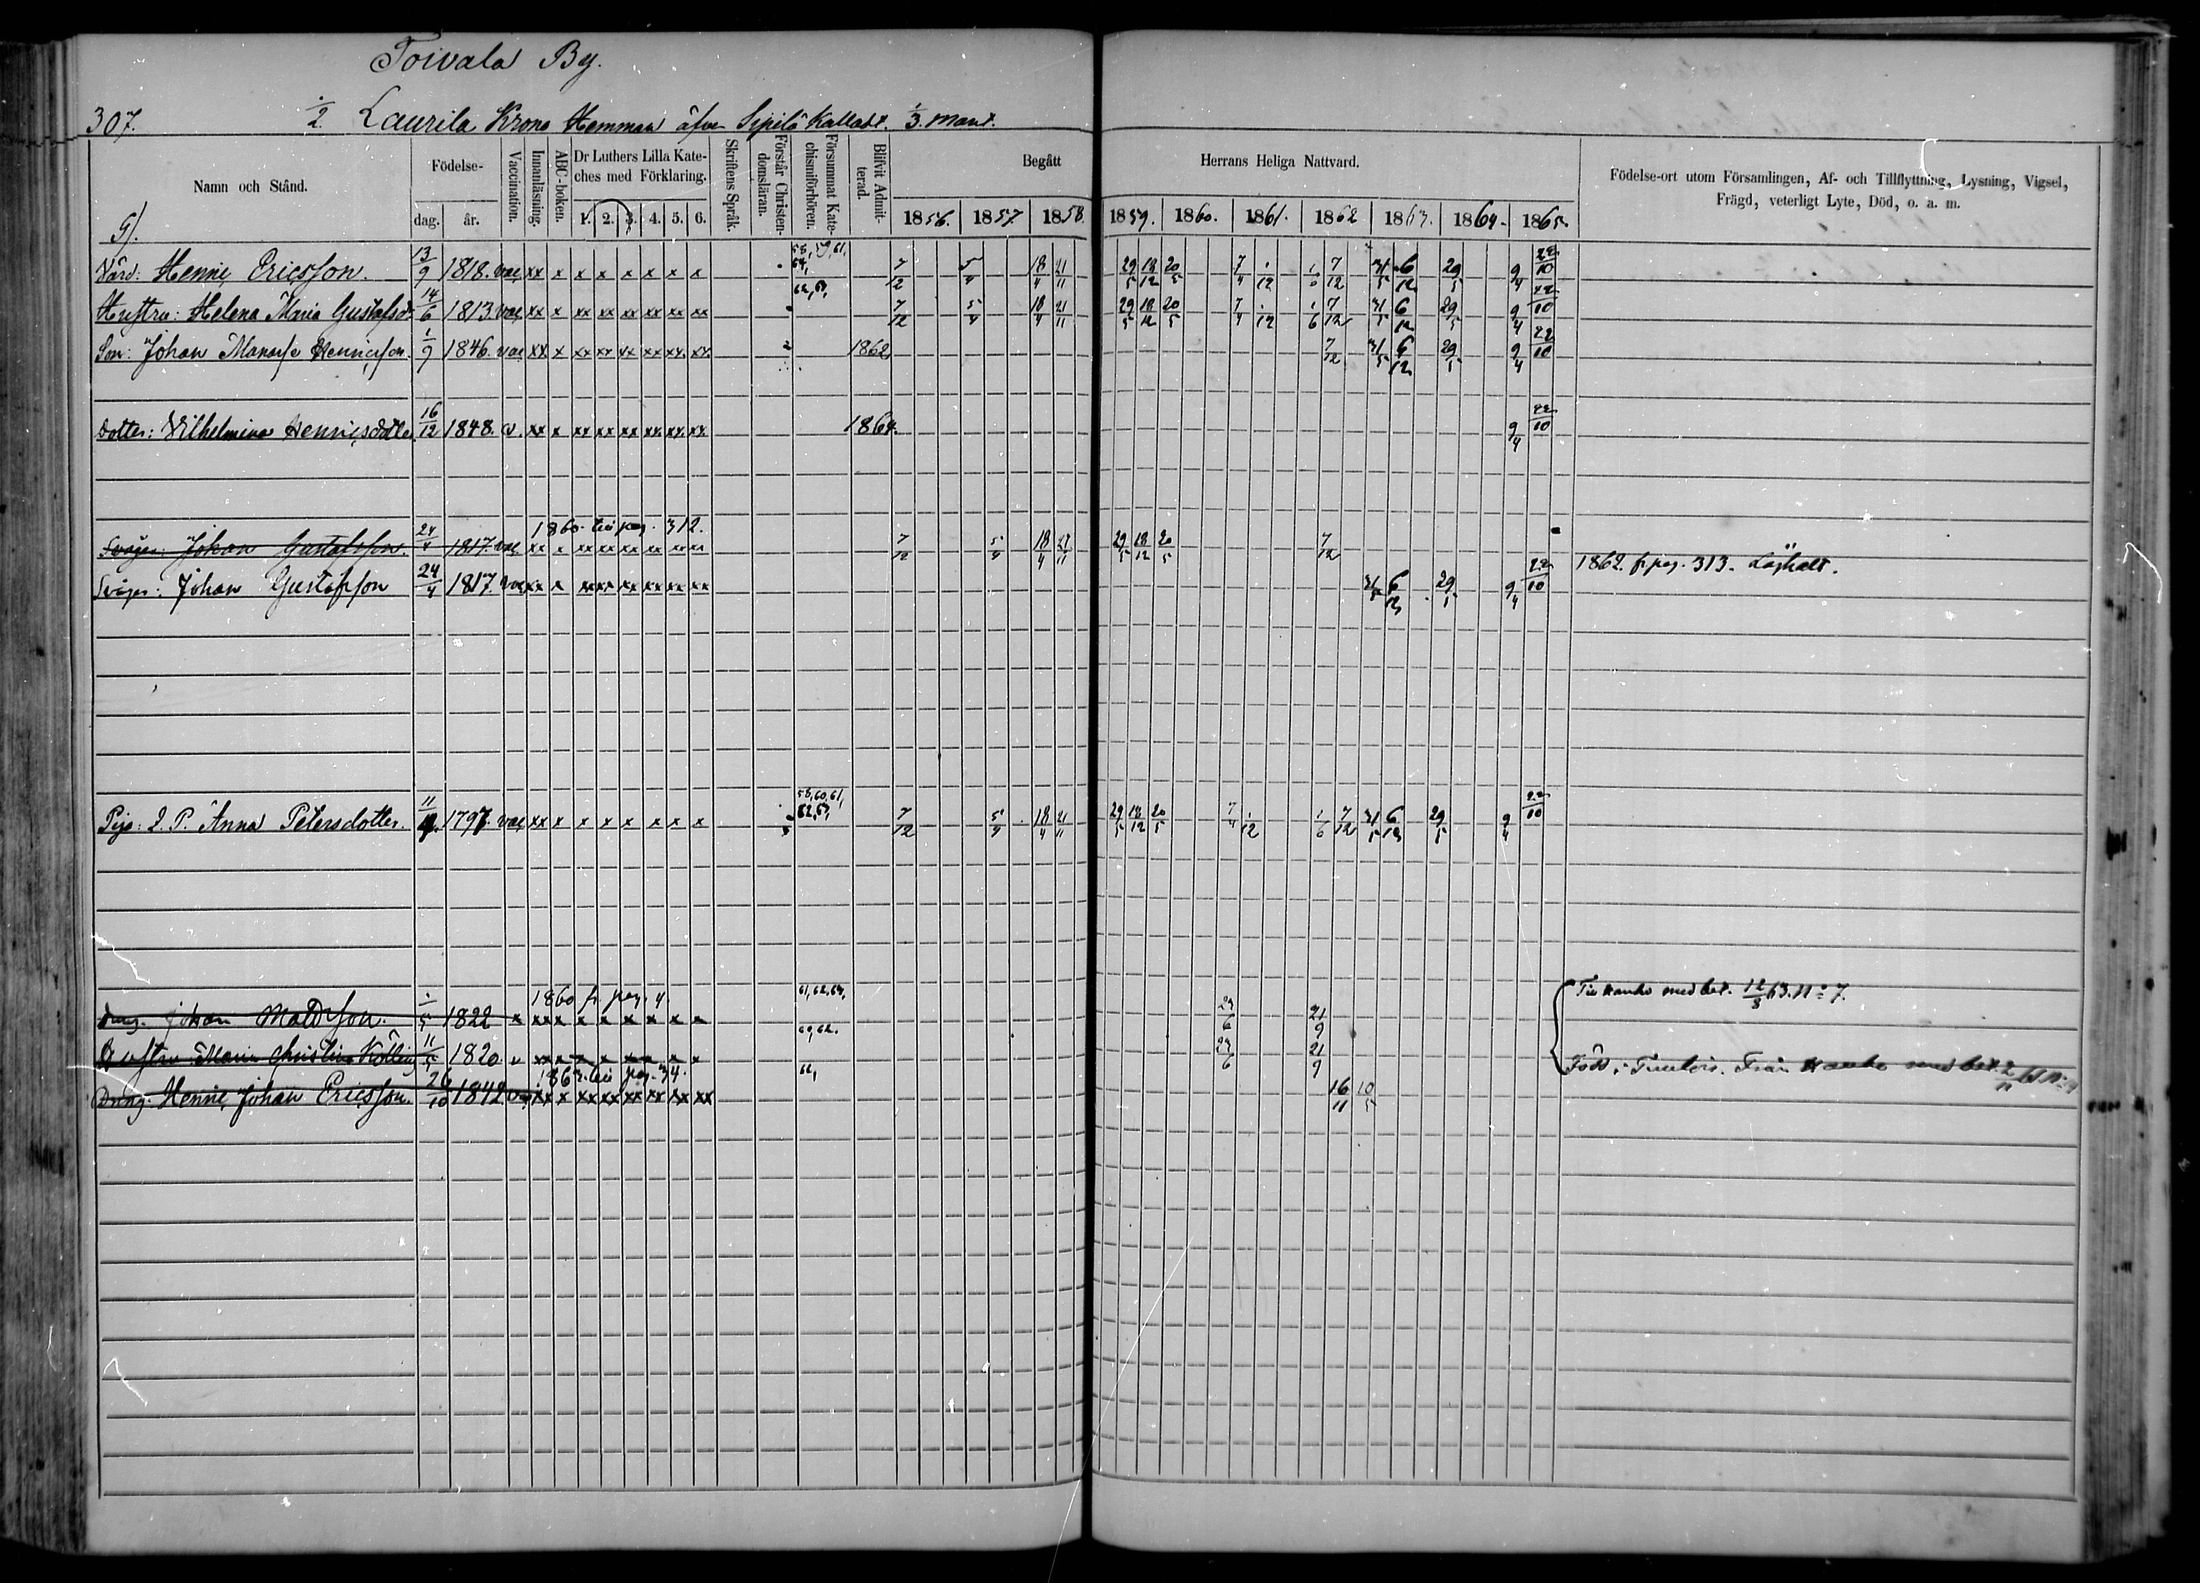 Toivala By.
307. 1/2 Laurila Krono Hemman äfven Sipilä Kalladt. 1/3. Mant.
Namn och Stånd. Födelse- dag. år. Vaccination. Innanläsning. ABC-boken. Dr Luthers Lilla Kateches med Förklaring. 1. 2. 3. 4. 5. 6. Skriftens Språk. Förstår Christendomsläran. Försummat Katechismiförhören. Blifvit Admitterad. Begått Herrans Heliga Nattvard. 1856. 1857. 1858. 1859. 1860. 1861. 1862 1863. 1864. 1865. Födelse-ort utom Församlingen, Af- och Tillflyttning, Lysning, Vigsel, Frägd, veterligt Lyte, Död, o. a. m.
58, 59, 61,
Värd: Henric Ericsson. 13/9 1818. vac xx x x x x x x x 64, 7/12 5/4 18/4 21/11 29/5 18/12 20/5 7/4 1/12 1/6 7/12 31/5 6/12 29/5 9/4 22/10
Hustru: Helena Maria Gustafsd. 14/6 1813. vac xx x xx xx xx xx xx xx 7/12 5/4 18/4 21/11 29/5 18/12 20/5 7/4 1/12 1/6 7/12 31/5 6/12 29/5 9/4 22/10
Son: Johan Manasse Henricsson. 1/9 1846. vac xx x xx xx xx xx xx xx 1862 7/12 31/5 6/12 29/5 9/4 22/10
Dotter: Vilhelmina Henricsdotter 16/12 1848. v. xx x xx xx xx xx xx xx 1864. 9/4 22/10
1860. till pag. 312.
Svåger: Johan Gustafsson. 24/4 1817. vac xx x xx xx xx xx xx xx 7/12 5/4 18/4 21/11 29/5 18/12 20/5 7/12
Svåger: Johan Gustafsson 24/4 1817. vac xx x xx xx xx xx xx xx 31/5 6/12 29/5 9/4 22/10 1862. fr pag. 313. Låghalt.
58, 60, 61,
Piga: Anna Petersdotter. 11/9 1797. vac xx x x x x x x x 62, 63, 7/12 5/4 18/4 21/11 29/5 18/12 20/5 7/4 1/12 1/6 7/12 31/5 6/12 29/5 9/4 22/10
1860 fr pag. 4. 61, 62, 63,
Dräng. Johan Matdsson. 1/5 1822 x xx x x x x x x x 23/6 21/9 Till Kauko med bet. 12/3 63. N:o 7.
Hustru: Maria Christina 11/5 1820. v xx x x x x x x x 60, 62. 23/6 21/9 Född i Från Kauko med bet. 2/11
1863. till pag. 34. 62,
Dräng: Henric Johan Ericsson. 26/10 1842 vac xx x xx xx xx xx xx xx 16/11 10/5